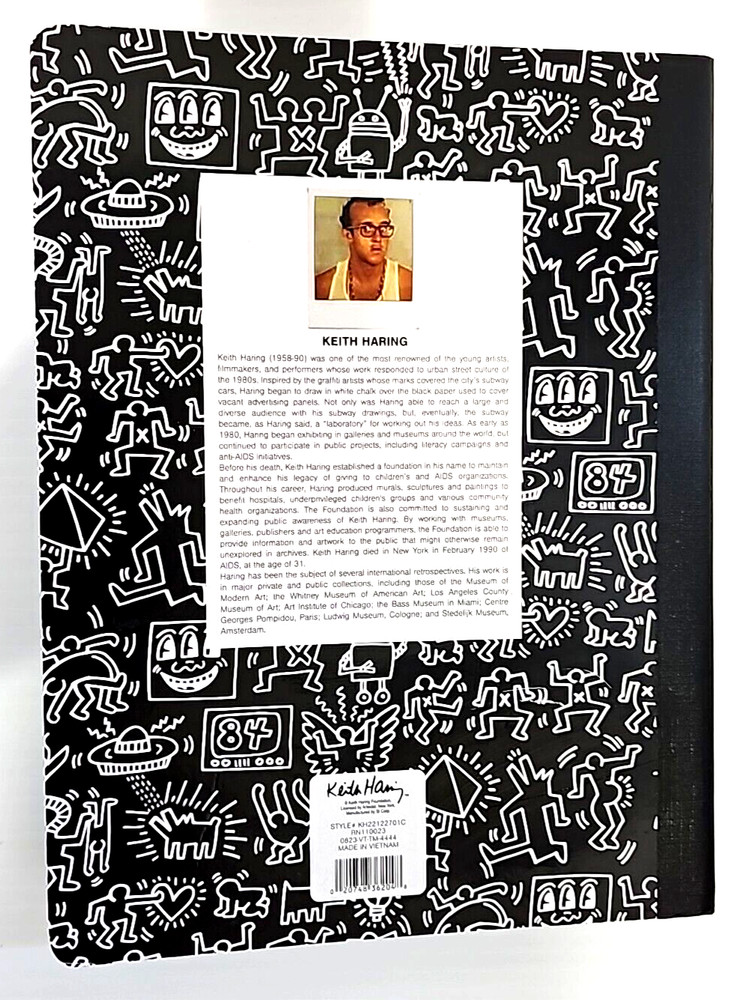 KEITH HARING
Keith Haring (1958-90) was one of the most renowned of the young artists,
filmmakers, and performers whose work responded to urban street culture of
the 1980s. Inspired by the graffiti artists whose marks covered the city's subway
cars, Haring began to draw in white chalk over the black paper used to cover
vacant advertising panels. Not only was Haring able to reach a large and
diverse audience with his subway drawings, but, eventually, the subway
became, as Haring said, a "laboratory" for working out his ideas. As early as
1980, Haring began exhibiting in galleries and museums around the world, but
continued to participate in public projects, including literacy campaigns and
anti-AIDS initiatives.
Before his death, Keith Haring established a foundation in his name to maintain
and enhance his legacy of giving to children's and AIDS organizations.
Throughout his career, Haring produced murals, sculptures and paintings to
benefit hospitals, underprivileged children's groups and various community
health organizations. The Foundation is also committed to sustaining and
expanding public awareness of Keith Haring. By working with museums,
galleries, publishers and art education programmes, the Foundation is able to
provide information and artwork to the public that might otherwise remain
unexplored in archives. Keith Haring died in New York in February 1990 of
AIDS, at the age of 31.
Haring has been the subject of several international retrospectives. His work is
in major private and public collections, including those of the Museum of
Modern Art; the Whitney Museum of American Art; Los Angeles County
Museum of Art; Art Institute of Chicago; the Bass Museum in Miami; Centre
Georges Pompidou, Paris; Ludwig Museum, Cologne; and Stedelijk Museum,
Amsterdam.
84
84
Keith Haring
© Keith Haring Foundation.
Licensed by Artestar, New York.
Manufactured by
STYLE# KH22122701C
RN110023
0823-VT-TM-4444
MADE IN VIETNAM
0 20748 36204 8